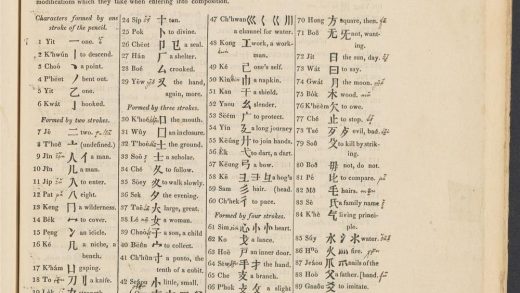 modifications which they take when entering into composition.
Characters formed by one
stroke of the pencil.
1 Yit 一 one.
2 K'hwún 丨 to descend.
3 Choó 丶 a point.
4 P'hëet 丿 bent out.
5 Yit 乙 one.
6 Kwát 亅 hooked.
Formed by two strokes.
7 Jē 二 two.
8 T'hoê 亠 (undefined.)
9 Jîn 人 亻 a man.
10 Jîn 儿 a man.
11 Jip 入 to enter.
12 Pat 八 eight.
13 Keng 冂 a wilderness.
14 Bek 冖 to cover.
15 Peng 冫 icicle.
16 Ké 几 a niche, a
bench.
17 K'hám 凵 gaping.
18 To 刀 刂 a knife.
24 Sip 十 tan.
25 Pok 卜 to divine.
26 Chëet 卩 㔾 a seal.
27 Hán 厂 a shelter.
28 Boé 厶 crooked.
29 Yëw 又 the hand,
again, more.
Formed by three strokes.
30 K'hoé 口 the mouth.
31 Wûy 囗 an inclosure.
32 T'hoé 土 the ground.
33 Soō 士 a scholar.
34 Ché 夂 to follow.
35 Söey 夊 to walk slowly.
36 Sek 夕 the evening.
37 Taē 大 large, great.
38 Lé 女 a woman.
39 Choó 子 a son, a child
40 Bëên 宀 to collect.
41 Ch'hùn 寸 a punto, the
tenth of a cubit.
42 Sëóu 小 little, small.
47 Ch'hwan 巛 川
a channel for water.
48 Kong 工 work, a work-
man.
49 Ké 己 one's self.
50 Kin 巾 a napkin.
51 Kan 干 a shield.
52 Yaou 幺 slender.
53 Sëém 广 to protect.
54 Yín 廴 a long journey
55 Këúng 廾 to join hands.
56 Ek 弋 to dart, a dart.
57 Këung 弓 a bow.
58 Kè 彐 彑 a hog's
59 Sam 彡 hair. (head.
60 Ch'hek 彳 to pace.
Formed by four strokes.
61 Sim 心 忄 heart.
62 Ko 戈 a lance.
63 Hoē 戶 an inner door.
64 Séw 手 扌 the hand.
65 Che 支 a branch.
66 P'hok 攴 攵 a slight
70 Hong 方 square, then.
71 Boô 无 not, want-
ing.
72 Jit 日 the sun, day.
73 Wát 曰 to say.
74 Gwát 月 the moon.
75 Bók 木 wood.
76 K'hëèm 欠 to owe.
77 Ché 止 to stop.
78 Taé 歹 歺 evil, bad.
79 Soô 殳 to kill by strik-
ing.
80 Boô 毋 not, do not.
81 Pé 比 to compare.
82 Mô 毛 hairs.
83 Sē 氏 a family name
84 K'hè 气 living princi-
ple.
85 Súy 水 氵 water.
86 H'ho 火 灬 fire.
87 Jëáou 爪 爫 nails of the
88 Hoō 父 father. (hand.
89 to imitate.